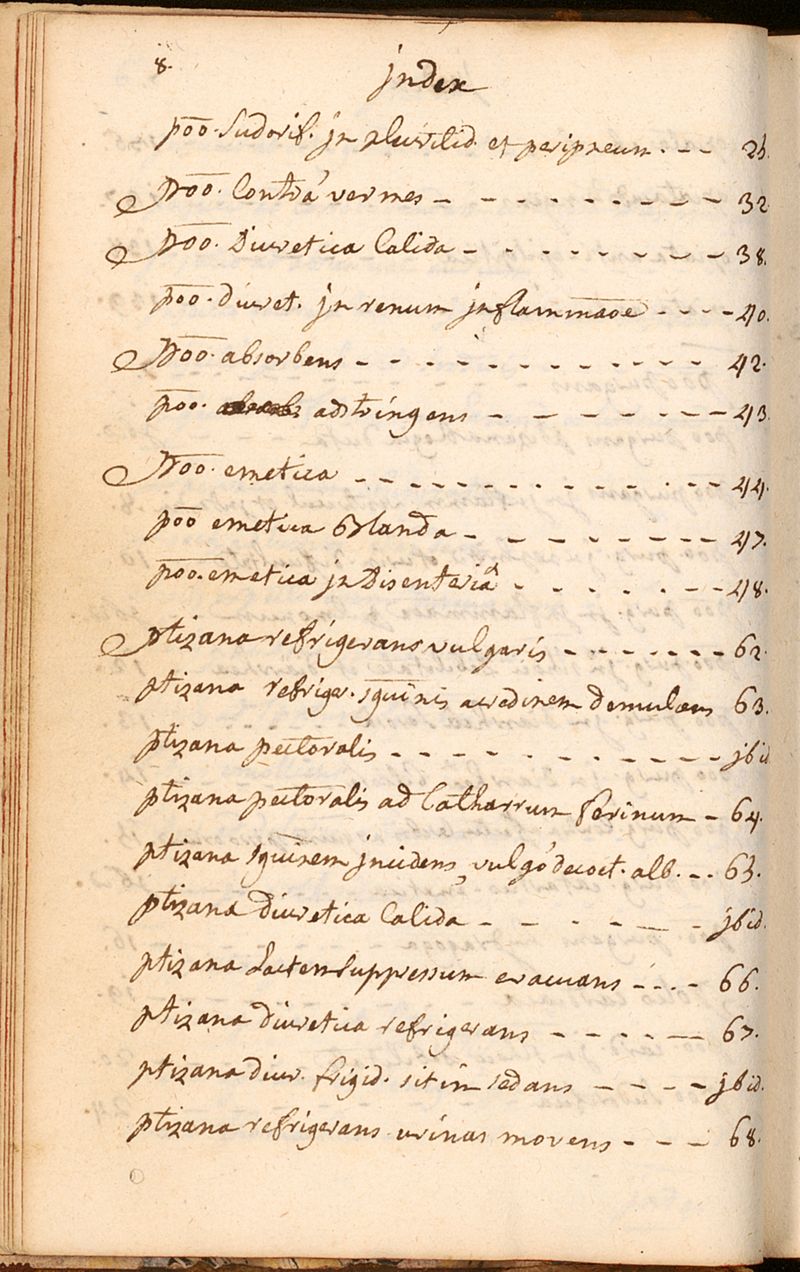 8.
jndex
põõ. Sudorif. jn pleuritid. et peripneum. - - - 26.
põõ. Contrá vermes - - - - - - - - - 32
põõ. Diuretica Calida - - - - - - - - 38.
põõ. diuret. jn renum jnflammaõe - - - - 40.
põõ. absorbens - - - - - - - - - - - 42.
põõ. adstringens - - - - - - - 43
põõ. emetica - - - - - - - - - - - 44.
põõ emetica Blanda - - - - - - - - 47.
põõ. emetica jn Disenteriâ - - - - - - - 48.
ptizana refrigerans vulgaris - - - - - - - 62.
ptizana refriger. sguinis acredinem demulcens 63.
ptizana pectoralis - - - - - - - - - - - jbid
ptizana pectoralis ad Catharrum ferinum - 64.
ptizana sguinem jncidens, vulgó decoct. alb. - - 65.
ptizana diuretica Calida - - - - - - jbid.
ptizana Lactem suppressum evacuans - - - - 66.
ptizana diuretica refrigerans - - - - - 67.
ptizana diur. frigid. sitim sedans - - - - jbid.
ptizana refrigerans urinas movens - - - 68.